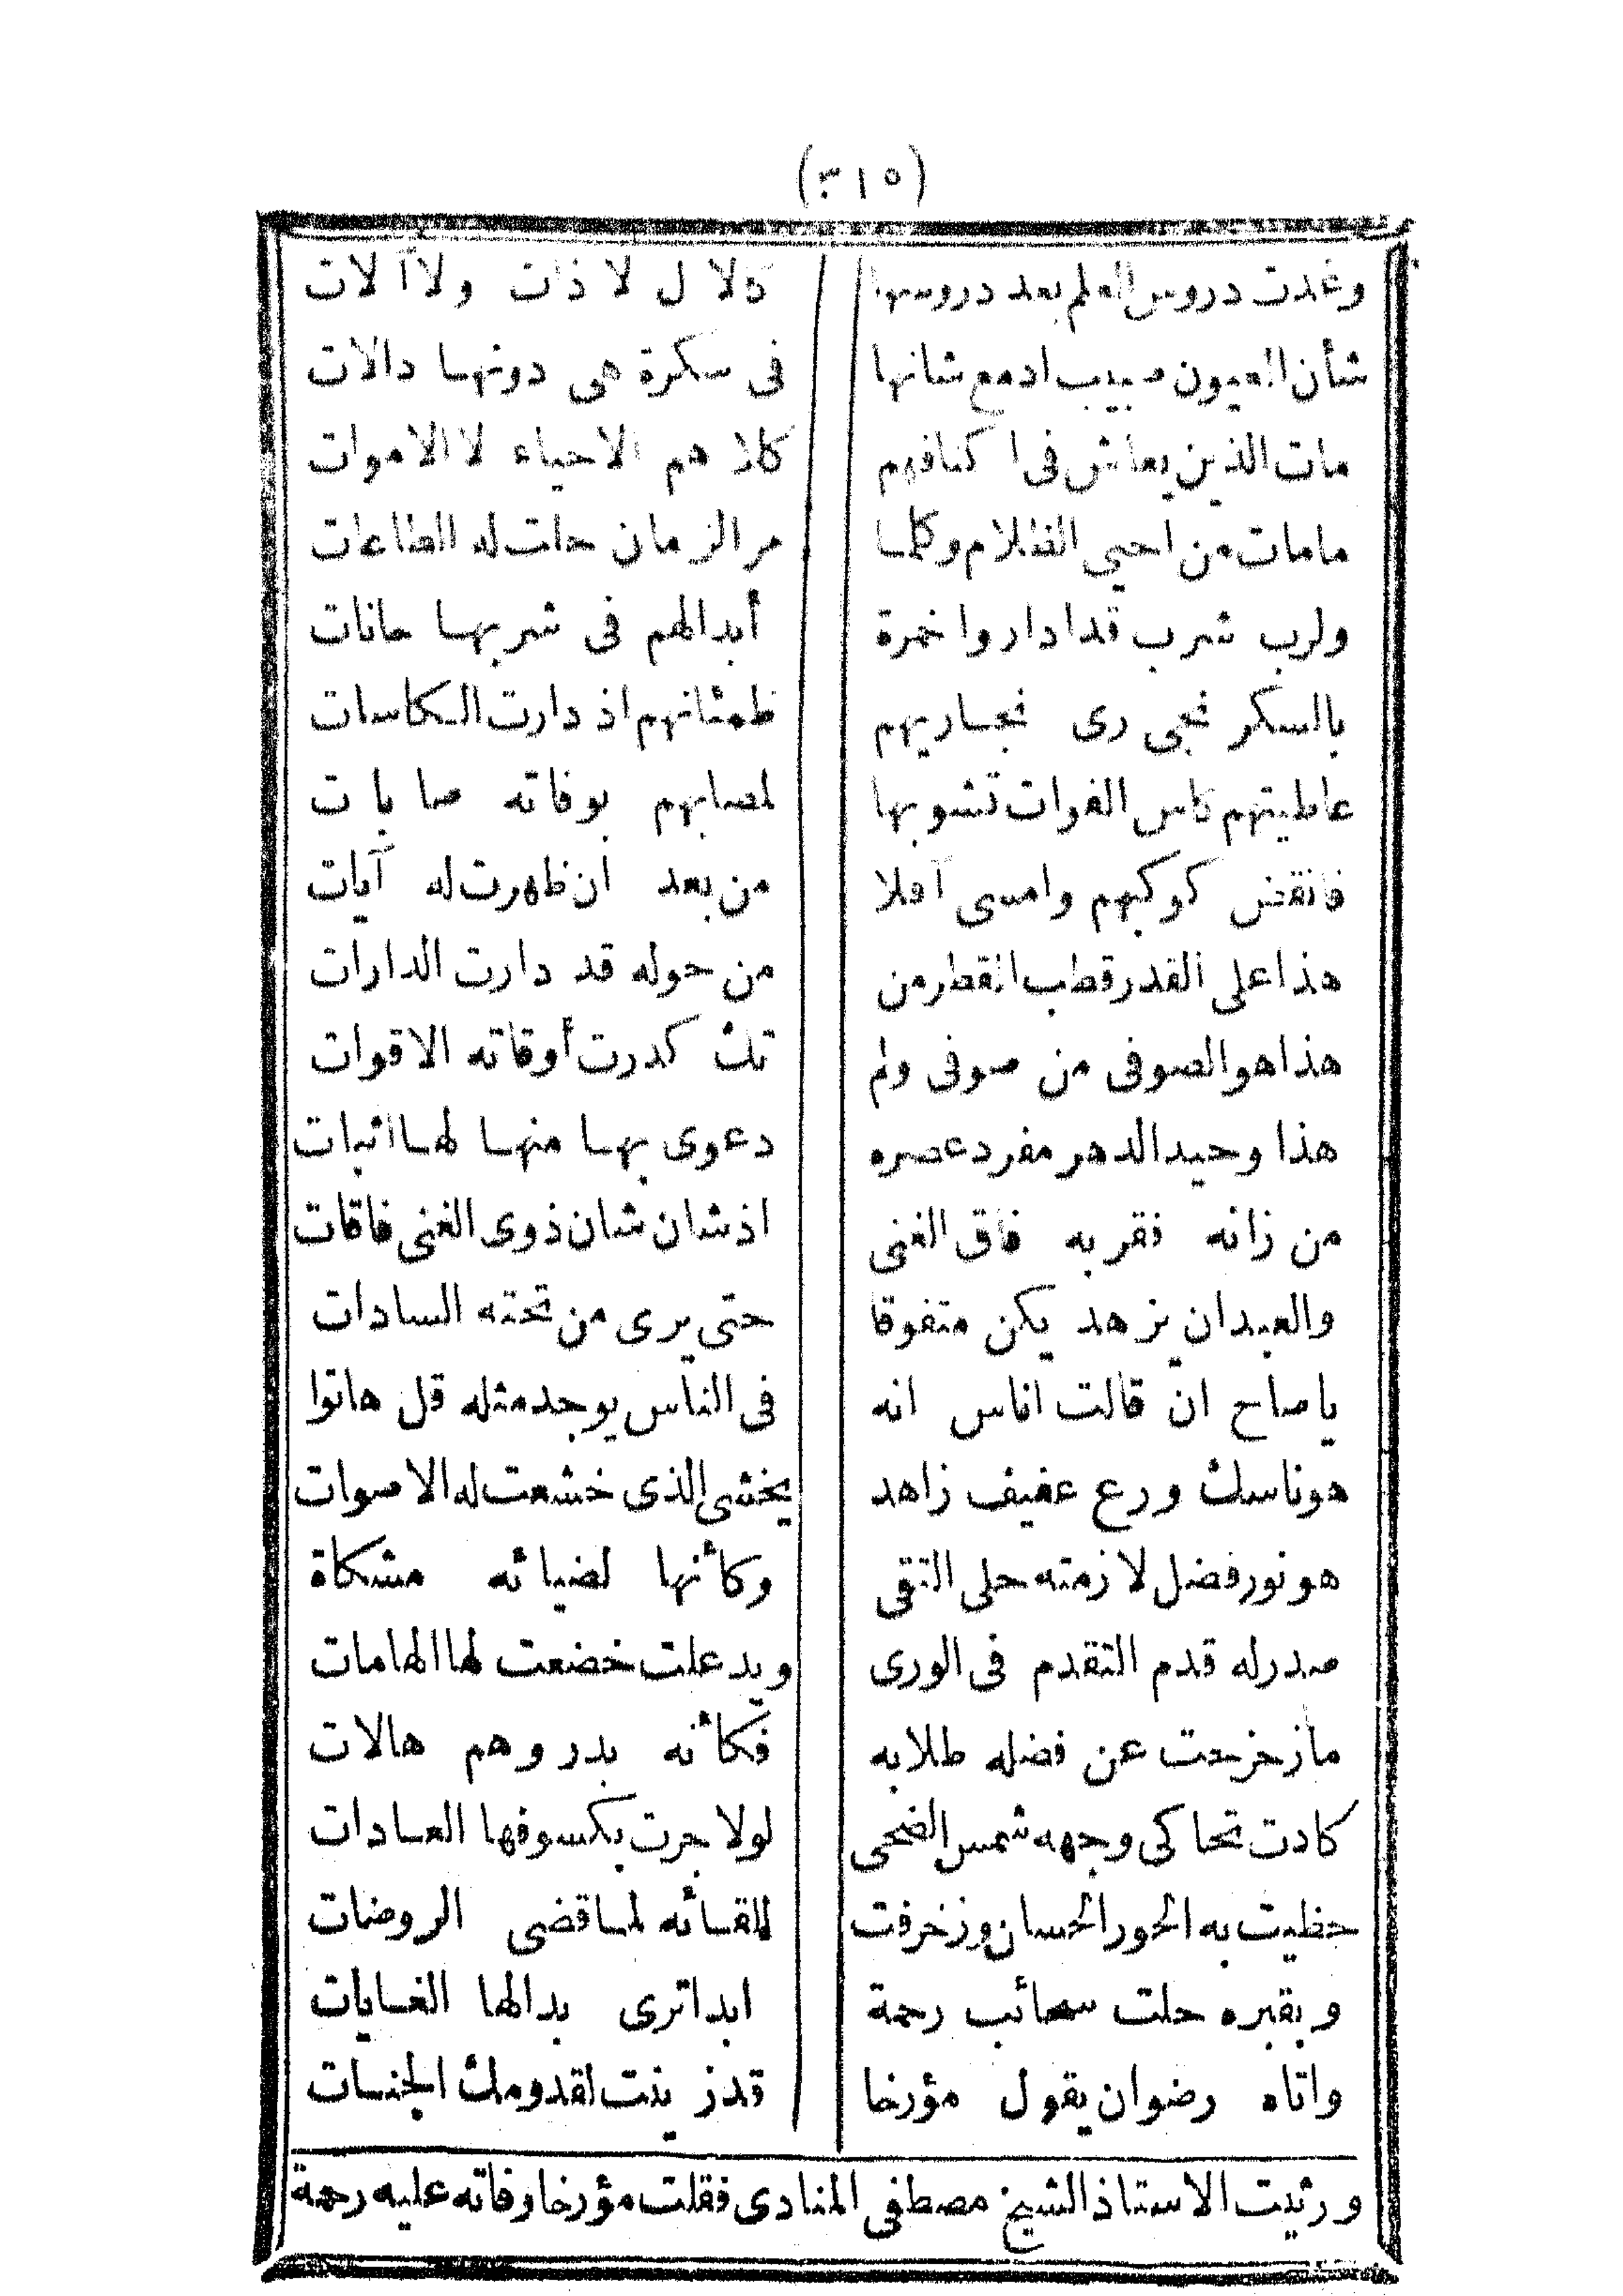 (٣١٥)
وغدت دروس العلم بعد دروسها كلال لا ذات ولا آلات
شأن العيون صبيب ادمع شانها فى سكرة هى دونها دالات
مات الذين يعاش فى اكنافهم كلا هم الاحياء لا الاموات
مامات من احيى الظلام وكلما مر الزمان حلت له الطاعات
ولرب شرب قد اداروا خمرة أبدا لهم فى شربها حانات
بالسكر نجى رى نجاريهم ظمئانهم اذ دارت الكاسات
عاطيتهم كاس الفرات تشوبها لمصابهم بوفاته صابات
فانقض كوكبهم وامسى آفلا من بعد ان ظهرت له آيات
هذا على القدر قطب القطر من من حوله قد دارت الدارات
هذا هو الصوفى من صوفى ولم تك كدرت أوقاته الاقوات
هذا وحيد الدهر مفرد عصره دعوى بها منها لها اثبات
من زانه فقر به فاق الغنى اذ شان شان ذوى الغنى فاقات
والعبد ان يزهد يكن متفوقا حتى يرى من تحته السادات
يا صاح ان قالت اناس انه فى الناس يوجد مثله قل هاتوا
هو ناسك ورع عفيف زاهد يخشى الذى خشعت له الاصوات
هو نور فضل لازمته حلى التقى وكأنها لضيائه مشكاة
صدر له قدم التقدم فى الورى ويد علت خضعت لها الهامات
مازحزحت عن فضله طلابه فكأنه بدر وهم هالات
كادت تحاكى وجهه شمس الضحى لولا جرت بكسوفها العادات
حظيت به الحور الحسان وزخرفت للقائه لما قضى الروضات
وبقبره حلت سحائب رحمة ابدا ترى بدا لها الغايات
واتاه رضوان يقول مؤرخا قد زينت لقدومك الجنات
ورثيت الاستاذ الشيخ مصطفى المنادى فقلت مؤرخا وفاته عليه رحمة